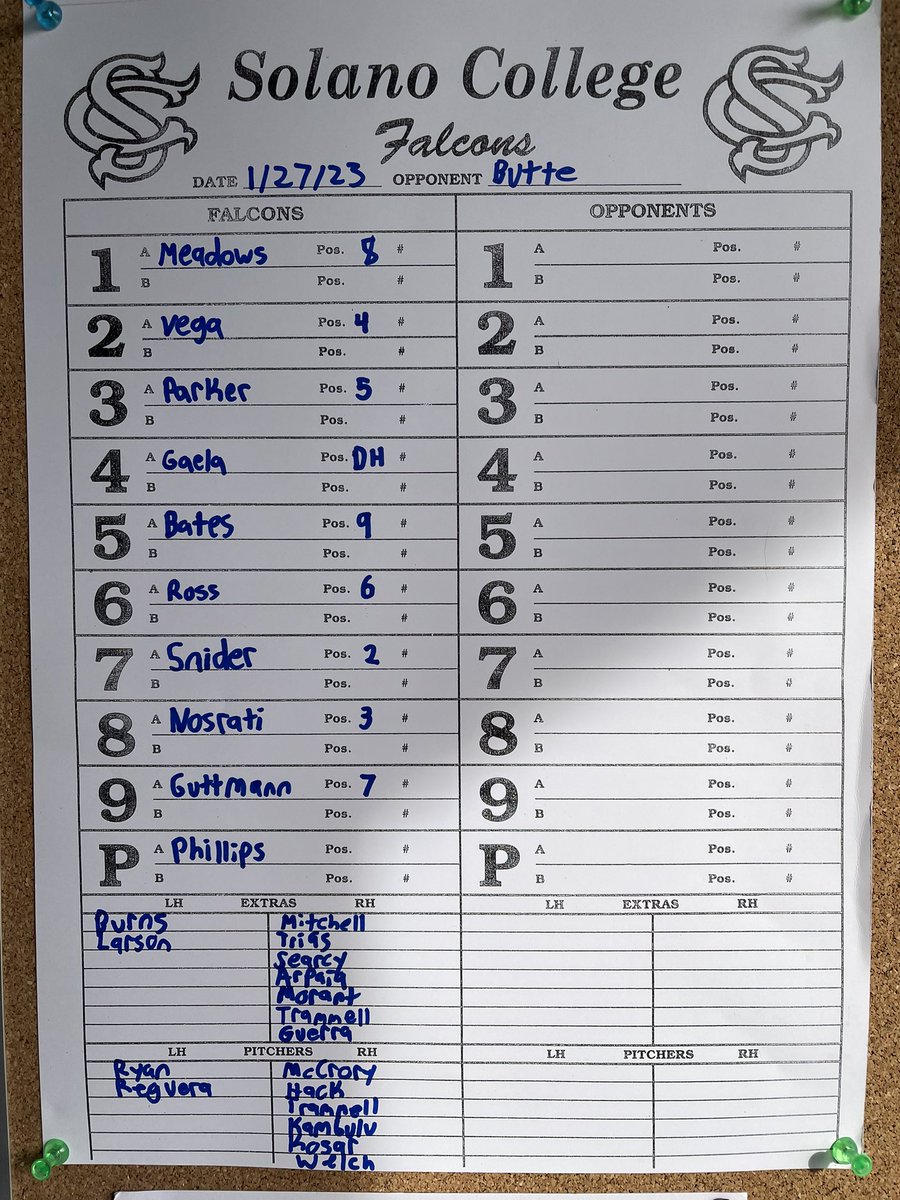 Solano College
Falcons
DATE 1/27/23 OPPONENT Butte
FALCONS OPPONENTS
1 A Meadows Pos. 8 # 1 A Pos. #
B Pos. # B Pos. #
2 A Vega Pos. 4 # 2 A Pos. #
B Pos. # B Pos. #
3 A Parker Pos. 5 # 3 A Pos. #
B Pos. # B Pos. #
4 A Gaela Pos. DH # 4 A Pos. #
B Pos. # B Pos. #
5 A Bates Pos. 9 # 5 A Pos. #
B Pos. # B Pos. #
6 A Ross Pos. 6 # 6 A Pos. #
B Pos. # B Pos. #
7 A Snider Pos. 2 # 7 A Pos. #
B Pos. # B Pos. #
8 A Nosrati Pos. 3 # 8 A Pos. #
B Pos. # B Pos. #
9 A Guttmann Pos. 7 # 9 A Pos. #
B Pos. # B Pos. #
P A Phillips Pos. # P A Pos. #
B Pos. # B Pos. #
LH EXTRAS RH LH EXTRAS RH
Burns Mitchell
Larson
Searcy
Arpaia
Morant
Trammell
Guerra
LH PITCHERS RH LH PITCHERS RH
Ryan McCrory
Regvera Hack
Trammell
Kambulu
Kosar
Welch